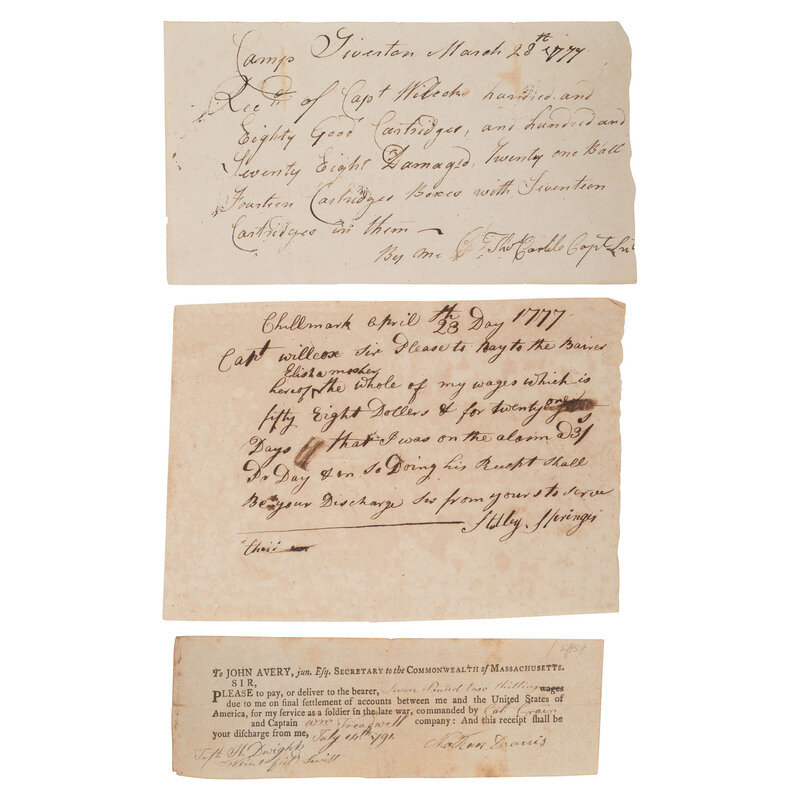 Camp Tiverton March 28th 1777
Recd of Capt Wilcoks hundred and
Eighty Good Cartridges, and hundred and
Seventy Eight Damaged, Twenty one Ball
Fourteen Cartridges Boxes with Seventeen
Cartridges in them
By me Thos Carlile Capt
Chillmark april 23th Day 1777
Capt willcox Sir Please to Pay to the Bairer
Elisha mosher
hereof the whole of my wages which is
fifty Eight Dollers & for twenty one
Days that I was on the alarm a 3/s
Pr Day & in So Doing his Recept Shall
Be your Discharge Sir from yours to serve
Springer
To JOHN AVERY, jun. Esq. SECRETARY to the COMMONWEALTH of MASSACHUSETTS.
SIR,
PLEASE to pay, or deliver to the bearer, Seven Pound two Shillings wages
due to me on final settlement of accounts between me and the United States of
America, for my service as a soldier in the late war, commanded by Col Crain
and Captain Wm Treadwell company: And this receipt shall be
your discharge from me, July 14th 1791
Test H. Dwight Nathan Travis
Swift